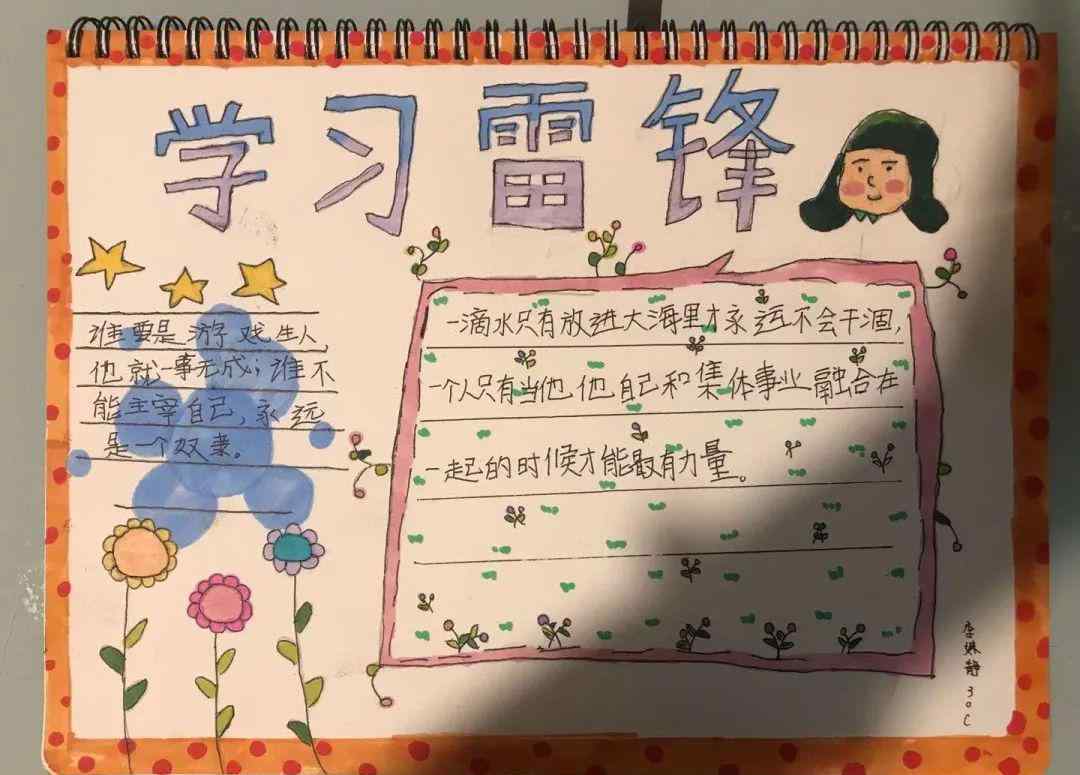 学习雷锋
谁要是游戏生人,
他就一事无成,谁不
能主宰自己,永远
是一个奴隶。
一滴水只有放进大海里才永远不会干涸,
一个人只有当他他自己和集体事业融合在
一起的时候才能最有力量。
李姝静
30C